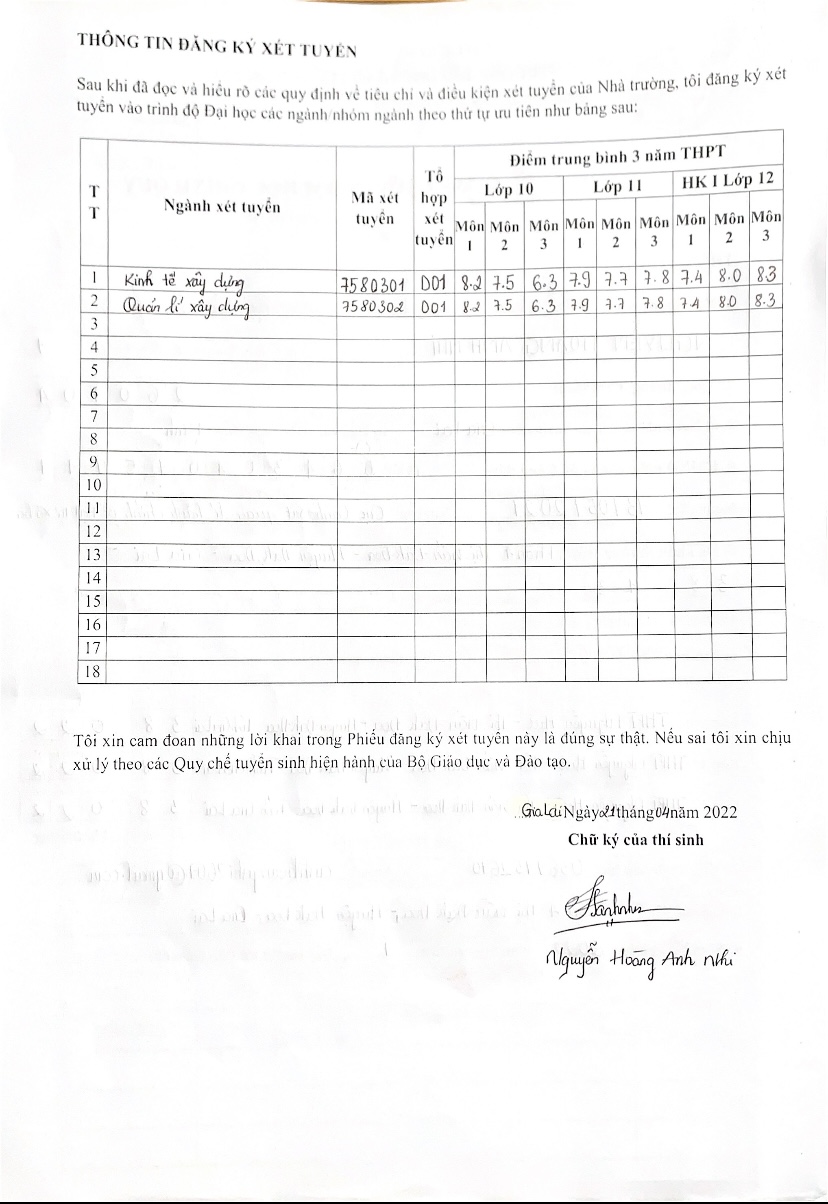 THÔNG TIN ĐĂNG KÝ XÉT TUYỂN
Sau khi đã đọc và hiểu rõ các quy định về tiêu chí và điều kiện xét tuyển của Nhà trường, tôi đăng ký xét
tuyển vào trình độ Đại học các ngành/nhóm ngành theo thứ tự ưu tiên như bảng sau:
TT Ngành xét tuyển Mã xét tuyển Tổ hợp xét tuyển Điểm trung bình 3 năm THPT
Lớp 10 Lớp 11 HK I Lớp 12
Môn 1 Môn 2 Môn 3 Môn 1 Môn 2 Môn 3 Môn 1 Môn 2 Môn 3
1 Kinh tế xây dựng 7580301 D01 8.2 7.5 6.3 7.9 7.7 7.8 7.4 8.0 8.3
2 Quản lí xây dựng 7580302 D01 8.2 7.5 6.3 7.9 7.7 7.8 7.4 8.0 8.3
3
4
5
6
7
8
9
10
11
12
13
14
15
16
17
18
Tôi xin cam đoan những lời khai trong Phiếu đăng ký xét tuyển này là đúng sự thật. Nếu sai tôi xin chịu
xử lý theo các Quy chế tuyển sinh hiện hành của Bộ Giáo dục và Đào tạo.
...Gia Lai Ngày 21 tháng 04 năm 2022
Chữ ký của thí sinh
Nguyễn Hoàng Anh Nhi